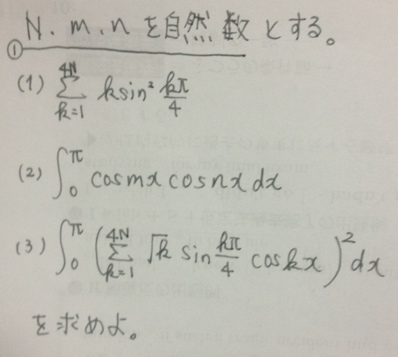 ① N. m. n を自然数とする。
(1) \sum_{k=1}^{4N} k sin² \frac{kπ}{4}
(2) \int_{0}^{π} cos mx cos nx dx
(3) \int_{0}^{π} ( \sum_{k=1}^{4N} √k sin \frac{kπ}{4} cos kx )² dx
を求めよ。